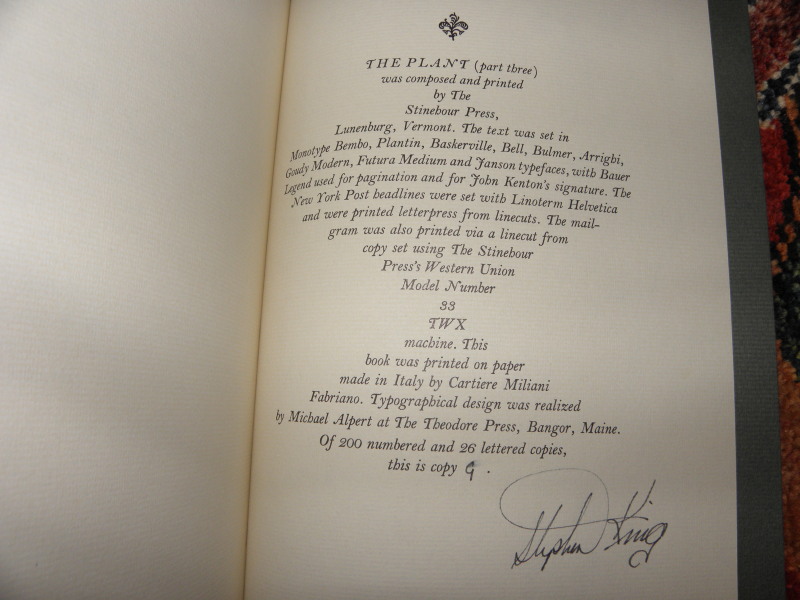 THE PLANT (part three)
was composed and printed
by The
Stinehour Press,
Lunenburg, Vermont. The text was set in
Monotype Bembo, Plantin, Baskerville, Bell, Bulmer, Arrighi,
Goudy Modern, Futura Medium and Janson typefaces, with Bauer
Legend used for pagination and for John Kenton's signature. The
New York Post headlines were set with Linoterm Helvetica
and were printed letterpress from linecuts. The mail-
gram was also printed via a linecut from
copy set using The Stinehour
Press's Western Union
Model Number
33
TWX
machine. This
book was printed on paper
made in Italy by Cartiere Miliani
Fabriano. Typographical design was realized
by Michael Alpert at The Theodore Press, Bangor, Maine.
Of 200 numbered and 26 lettered copies,
this is copy 9.
Stephen King